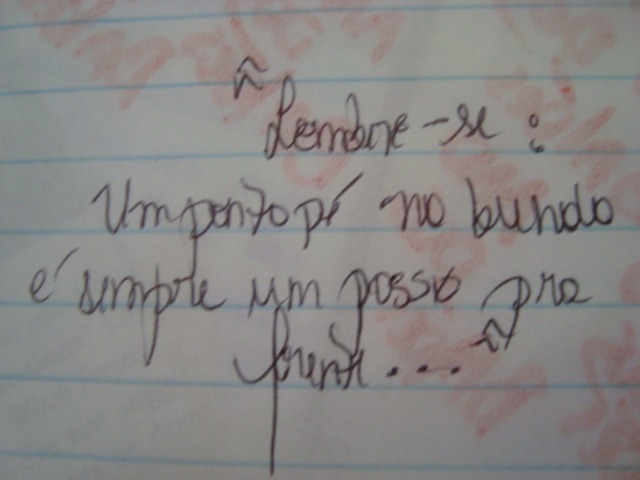 "Lembre-se:
Um pontapé na bunda
é sempre um passo pra
frente..."